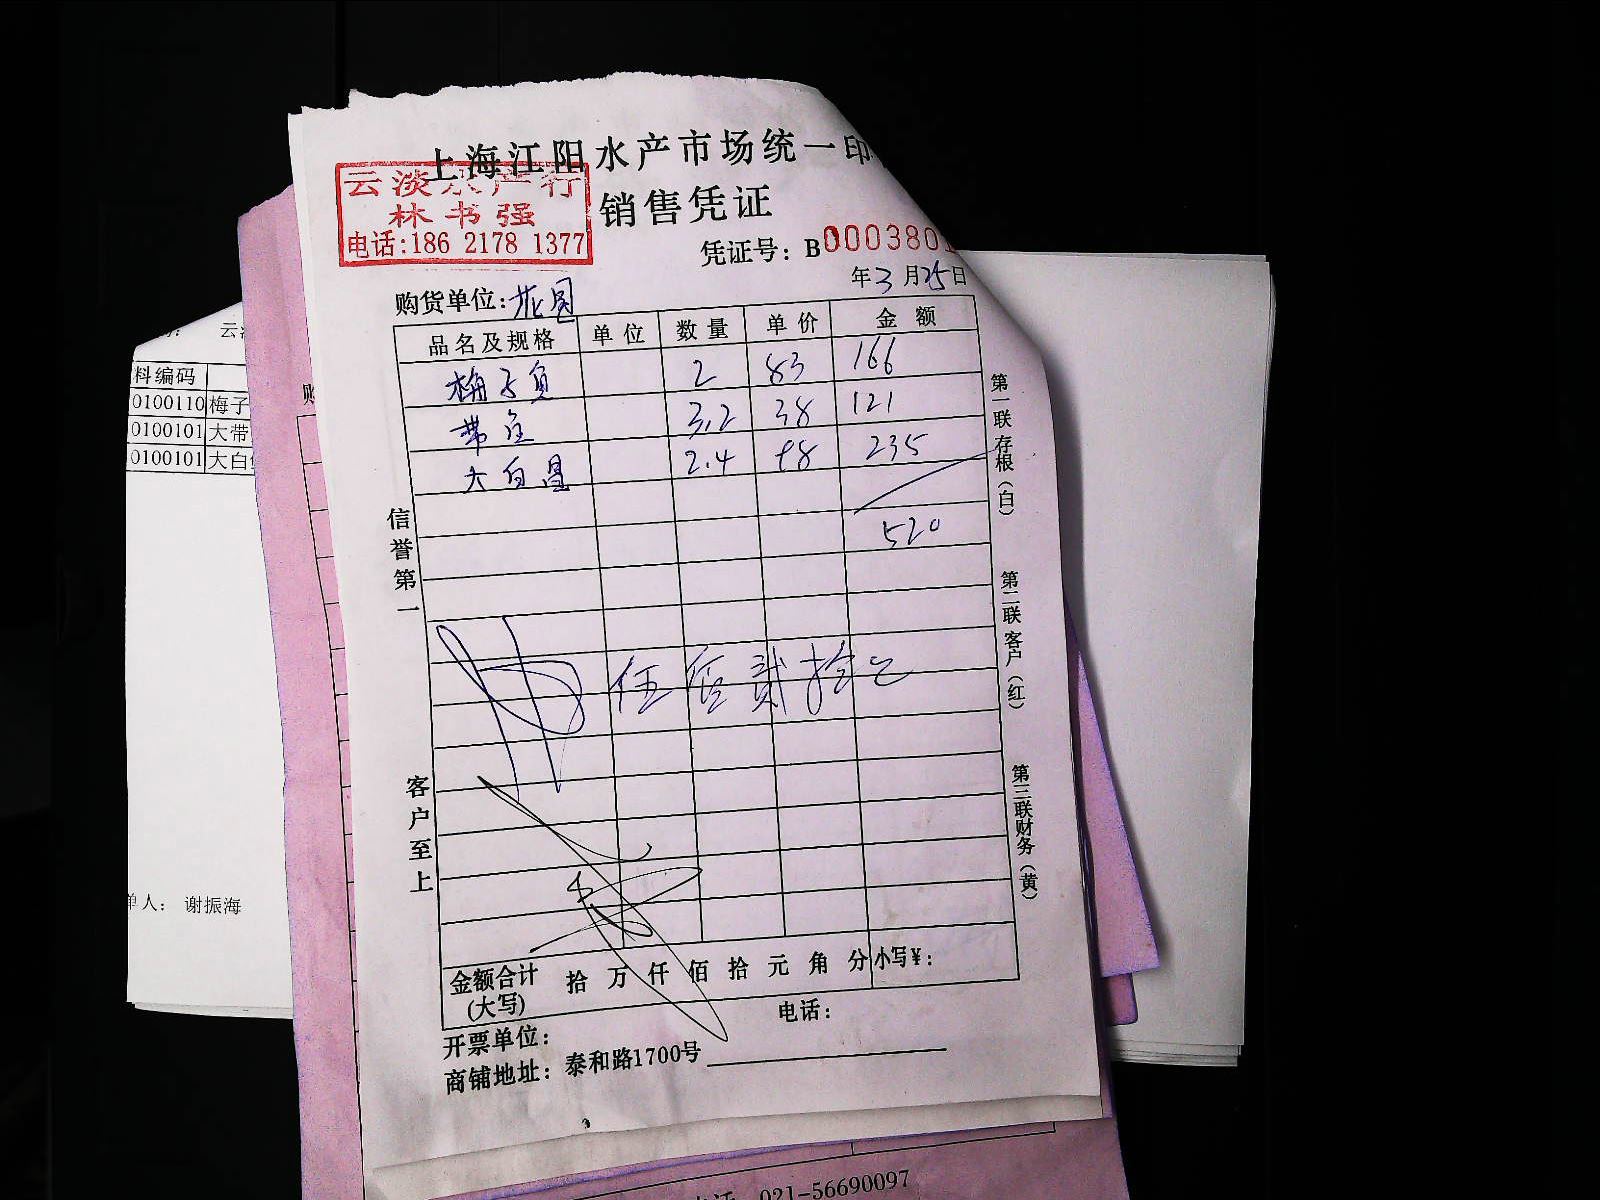 上海江阳水产市场统一印
云淡水产行
林书强
电话:186 2178 1377
销售凭证
凭证号: B 000380
年3月25日
购货单位:花园
品名及规格 单位 数量 单价 金额
梅子鱼 2 83 166
带鱼 3.2 38 121
大白鲳 2.4 98 235
520
伍佰贰拾元
信誉第一
客户至上
第一联存根(白)
第二联客户(红)
第三联财务(黄)
金额合计(大写) 拾万仟佰拾元角分 小写¥:
开票单位: 电话:
商铺地址: 泰和路1700号
云
料编码
0100110 梅子
0100101 大带
0100101 大白
单人: 谢振海
购
电话 021-56690097